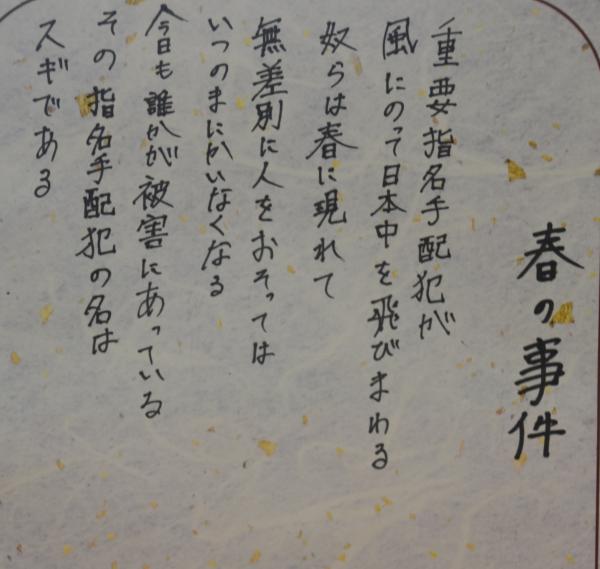 春の事件
重要指名手配犯が
風にのって日本中を飛びまわる
奴らは春に現れて
無差別に人をおそっては
いつのまにかいなくなる
今日も誰かが被害にあっている
その指名手配犯の名は
スギである